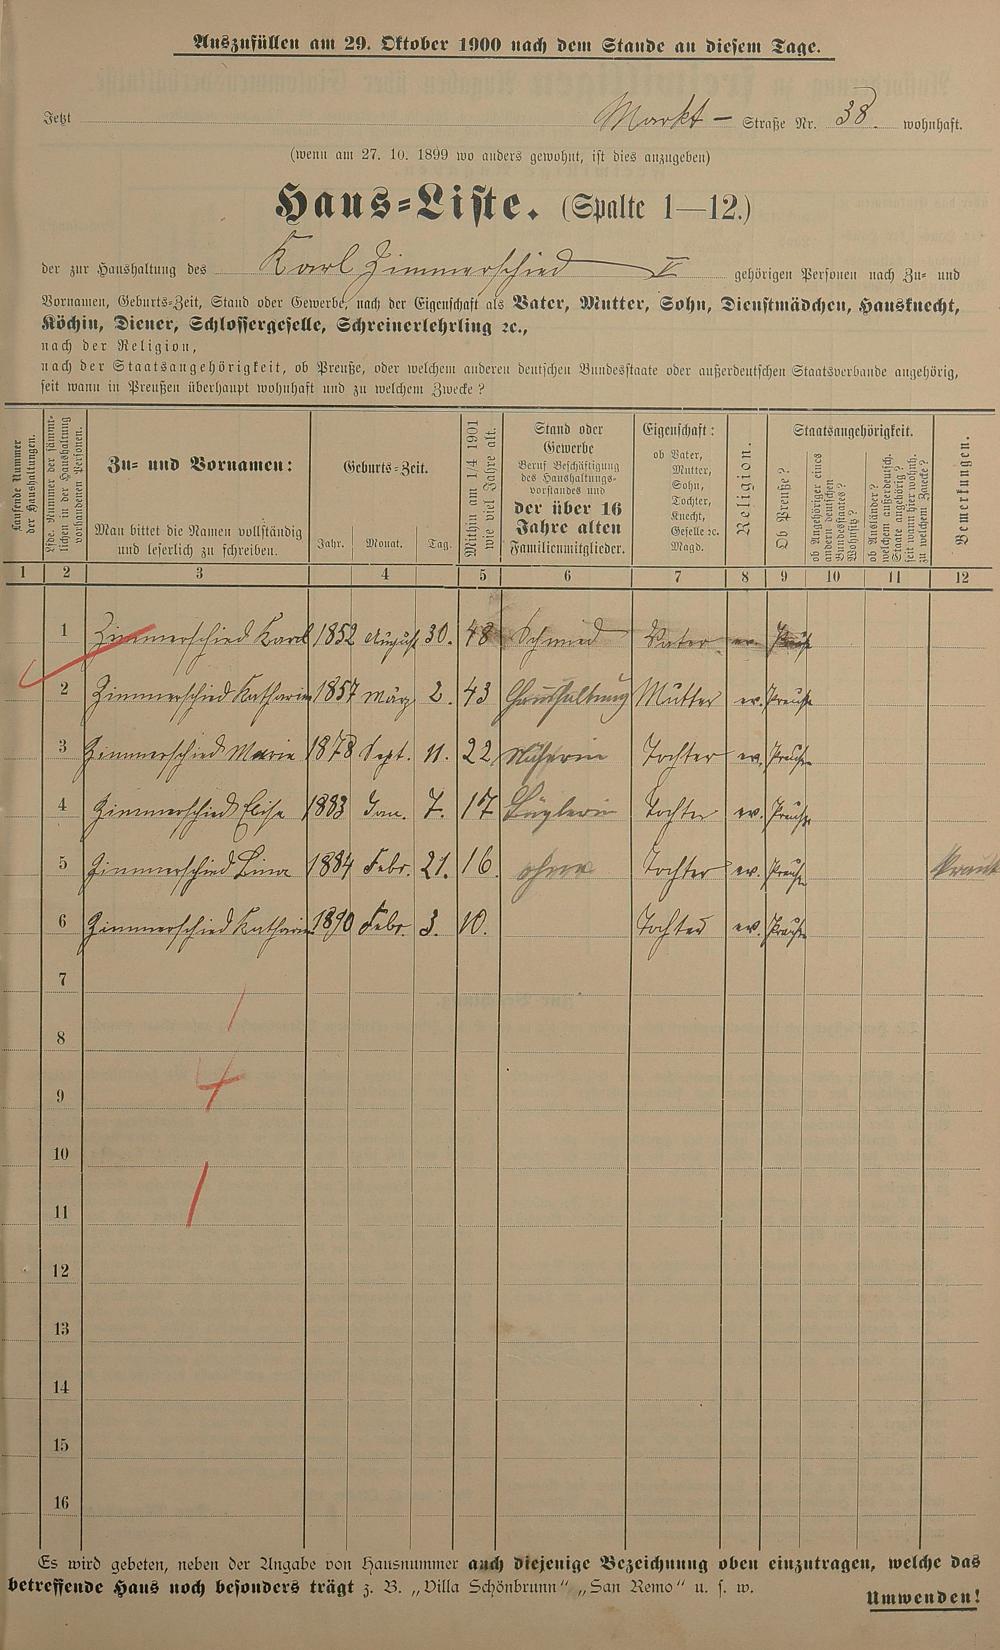 Auszufüllen am 29. Oktober 1900 nach dem Stande an diesem Tage.
Jetzt Markt- Straße Nr. 38. wohnhaft.
(wenn am 27. 10. 1899 wo anders gewohnt, ist dies anzugeben)
Haus-Liste. (Spalte 1—12.)
der zur Haushaltung des Karl Zimmerschied gehörigen Personen nach Zu- und
Vornamen, Geburts-Zeit, Stand oder Gewerbe, nach der Eigenschaft als Vater, Mutter, Sohn, Dienstmädchen, Hausknecht,
Köchin, Diener, Schlossergeselle, Schreinerlehrling ꝛc.,
nach der Religion,
nach der Staatsangehörigkeit, ob Preuße, oder welchem anderen deutschen Bundesstaate oder außerdeutschen Staatsverbande angehörig,
seit wann in Preußen überhaupt wohnhaft und zu welchem Zwecke?
Laufende Nummer
der Haushaltungen.
Lfde. Nummer der sämmt-
lichen in der Haushaltung
vorhandenen Personen.
Zu- und Vornamen:
Man bittet die Namen vollständig
und leserlich zu schreiben.
Geburts-Zeit.
Jahr. Monat. Tag.
Mithin am 1/4 1901
wie viel Jahre alt.
Stand oder
Gewerbe
Beruf Beschäftigung
des Haushaltungs-
vorstandes und
der über 16
Jahre alten
Familienmitglieder.
Eigenschaft:
ob Vater,
Mutter,
Sohn,
Tochter,
Knecht,
Geselle ꝛc.
Magd.
Religion.
Staatsangehörigkeit.
Ob Preuße?
ob Angehöriger eines
andern deutschen
Bundesstaates?
Wohnsitz?
ob Ausländer?
welchem außerdeutsch.
Staate angehörig?
seit wann hier wohnh.
zu welchem Zwecke?
Bemerkungen.
1 2 3 4 5 6 7 8 9 10 11 12
1 Zimmerschied Karl 1852 August 30. 48 Schmied Vater ev. Preuße
2 Zimmerschied Katharine 1857 März 2. 43 Haushaltung Mutter ev. Preuße
3 Zimmerschied Marie 1878 Sept. 11. 22 Näherin Tochter ev. Preuße
4 Zimmerschied Elise 1883 Jan. 7. 17 Büglerin Tochter ev. Preuße
5 Zimmerschied Lina 1884 Febr. 21. 16. ohne Tochter ev. Preuße krank
6 Zimmerschied Katharine 1890 Febr. 3. 10. Tochter ev. Preuße
7
1
8
4
9
10
1
11
12
13
14
15
16
Es wird gebeten, neben der Angabe von Hausnummer auch diejenige Bezeichnung oben einzutragen, welche das
betreffende Haus noch besonders trägt z. B. „Villa Schönbrunn“ „San Remo“ u. s. w.
Umwenden!